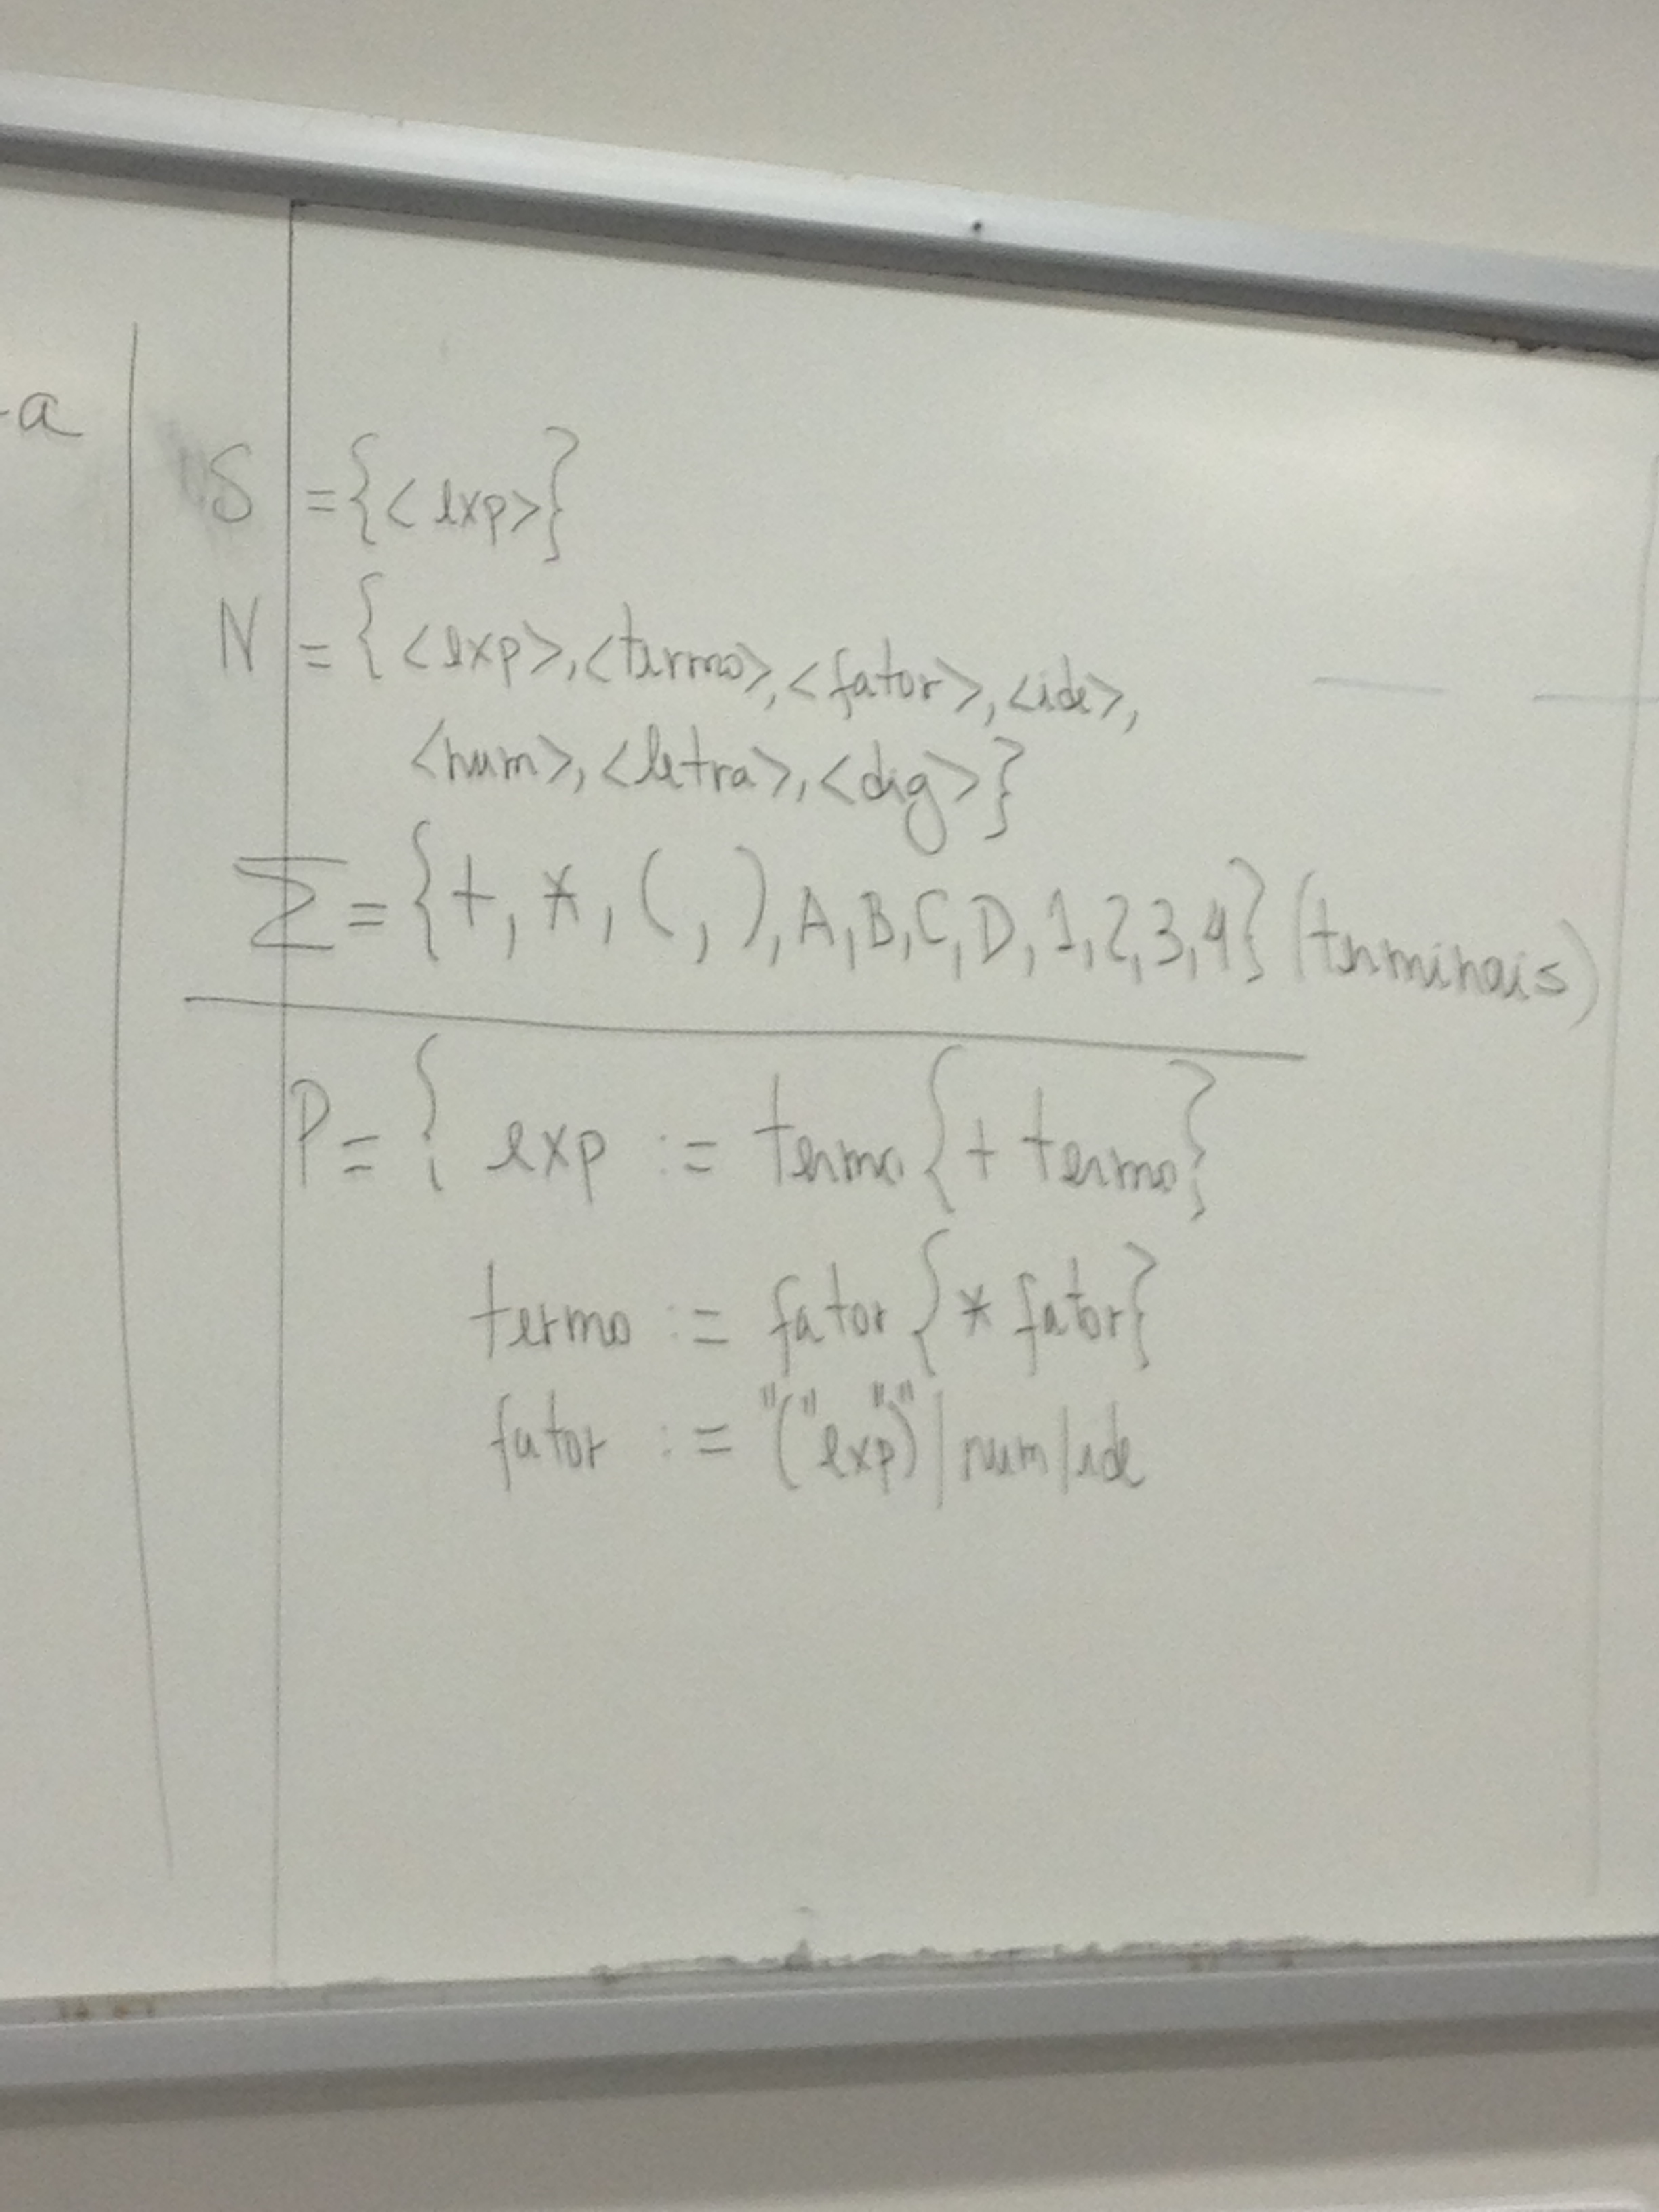 -a
S = {< exp>}
N = { <exp>, <termo>, <fator>, <ide>,
<num>, <letra>, <dig>}
Σ = {+, *, (, ), A, B, C, D, 1, 2, 3, 4} (terminais)
P = { exp := termo {+ termo}
termo := fator {* fator}
fator := "(" exp ")" | num | ide